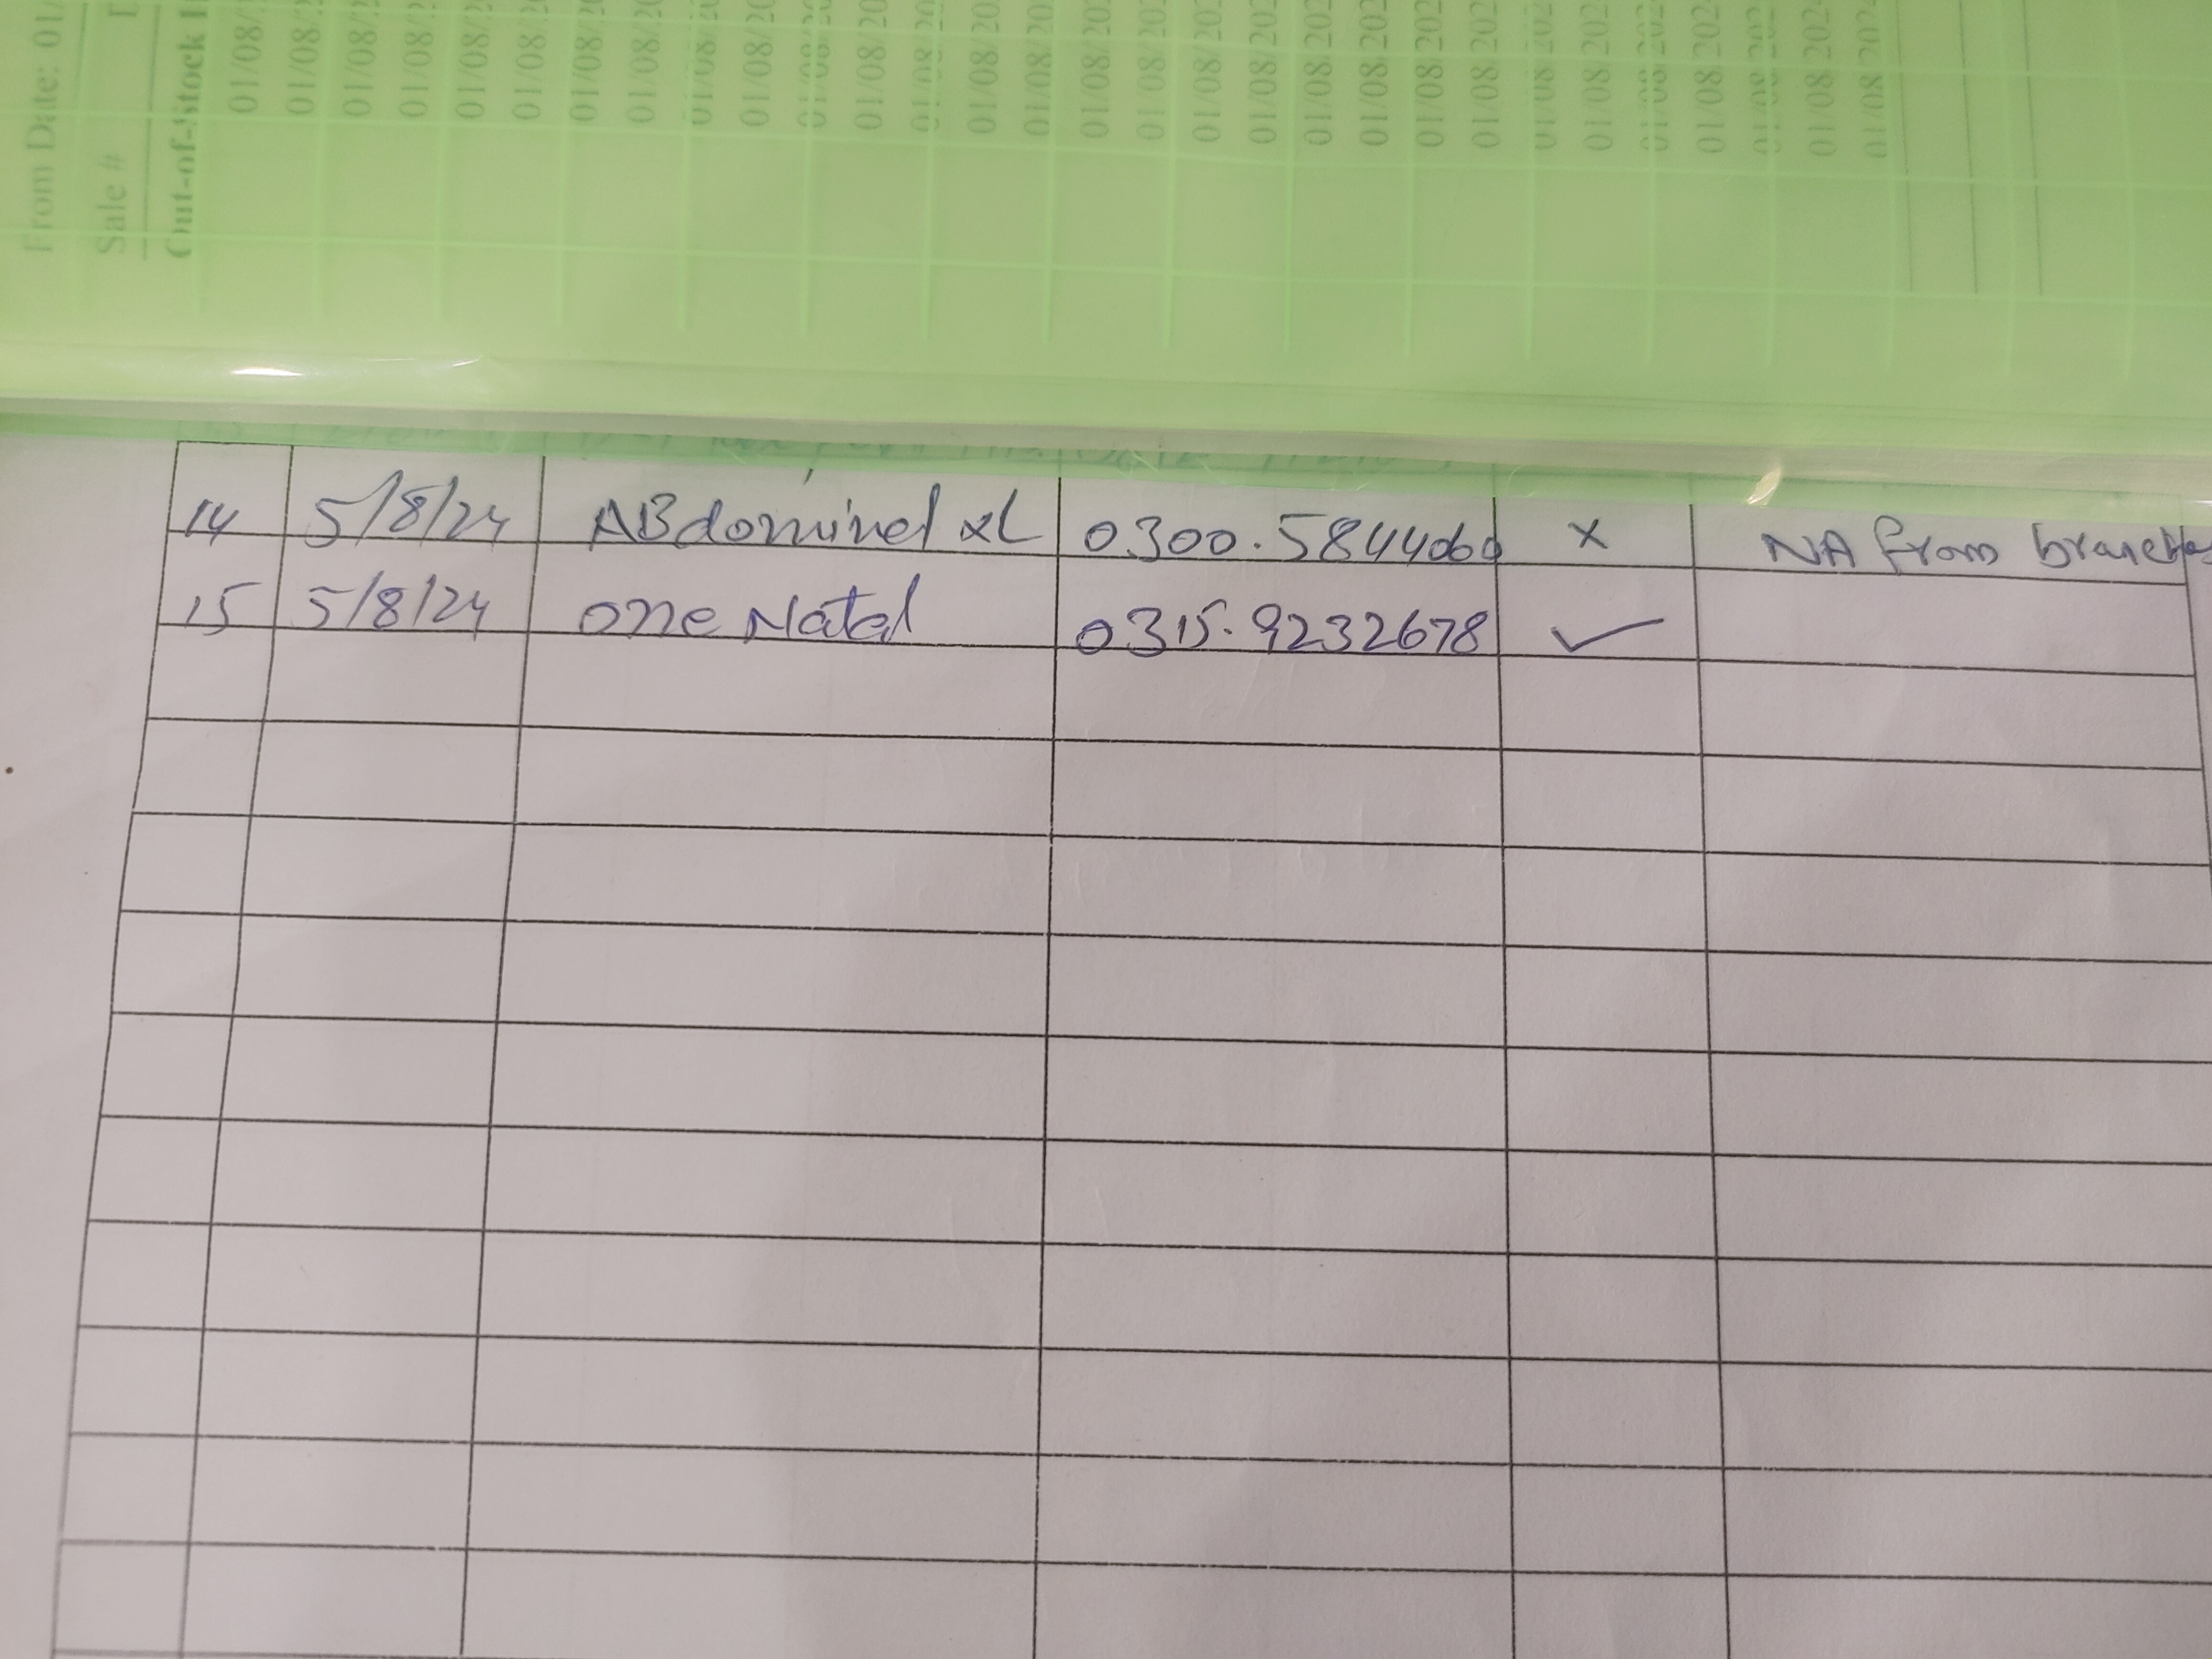 From Date: 01/
Sale #
Out-of-Stock I
01/08/2
01/08/2
01/08/2
01/08/2
01/08/2
01/08/2
01/08/20
01/08/20
01/08/20
01/08/20
01/08/20
01/08/20
01/08/20
01/08/20
01/08/202
01/08/202
01/08/202
01/08/202
01/08/202
01/08/202
01/08/202
01/08/202
01/08/202
01/08/202
01/08/202
01/08/202
01/08/202
01/08/202
01/08/202
01/08/202
14 5/8/24 ABdominel xL 0300.5844060 x NA from branches
15 5/8/24 one Natal 0315.9232678 ✓